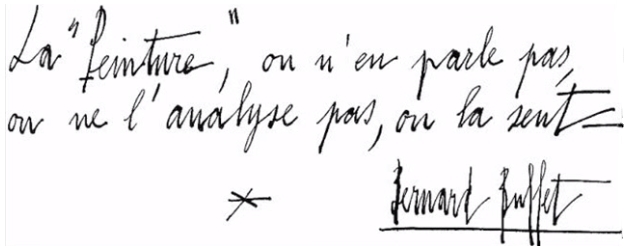 La "Peinture", on n'en parle pas,
on ne l'analyse pas, on la sent
Bernard Buffet